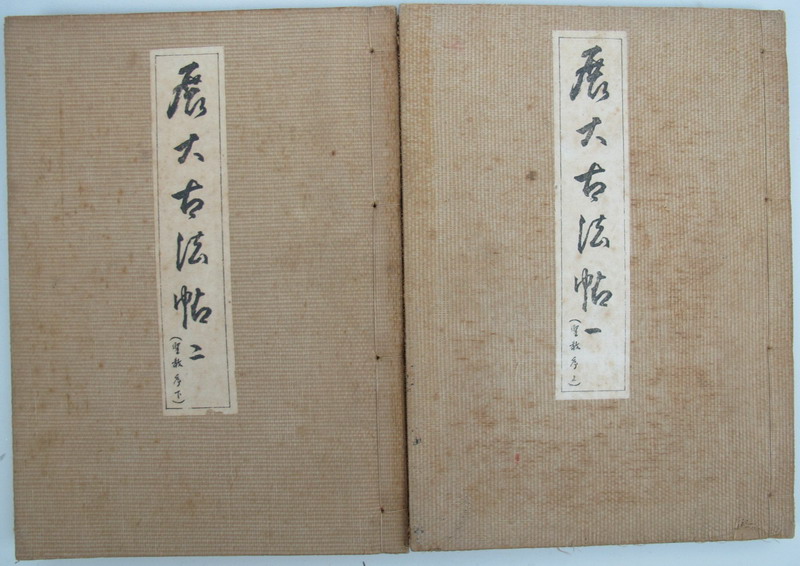 展大古法帖一
(聖教序上)
展大古法帖二
(聖教序下)